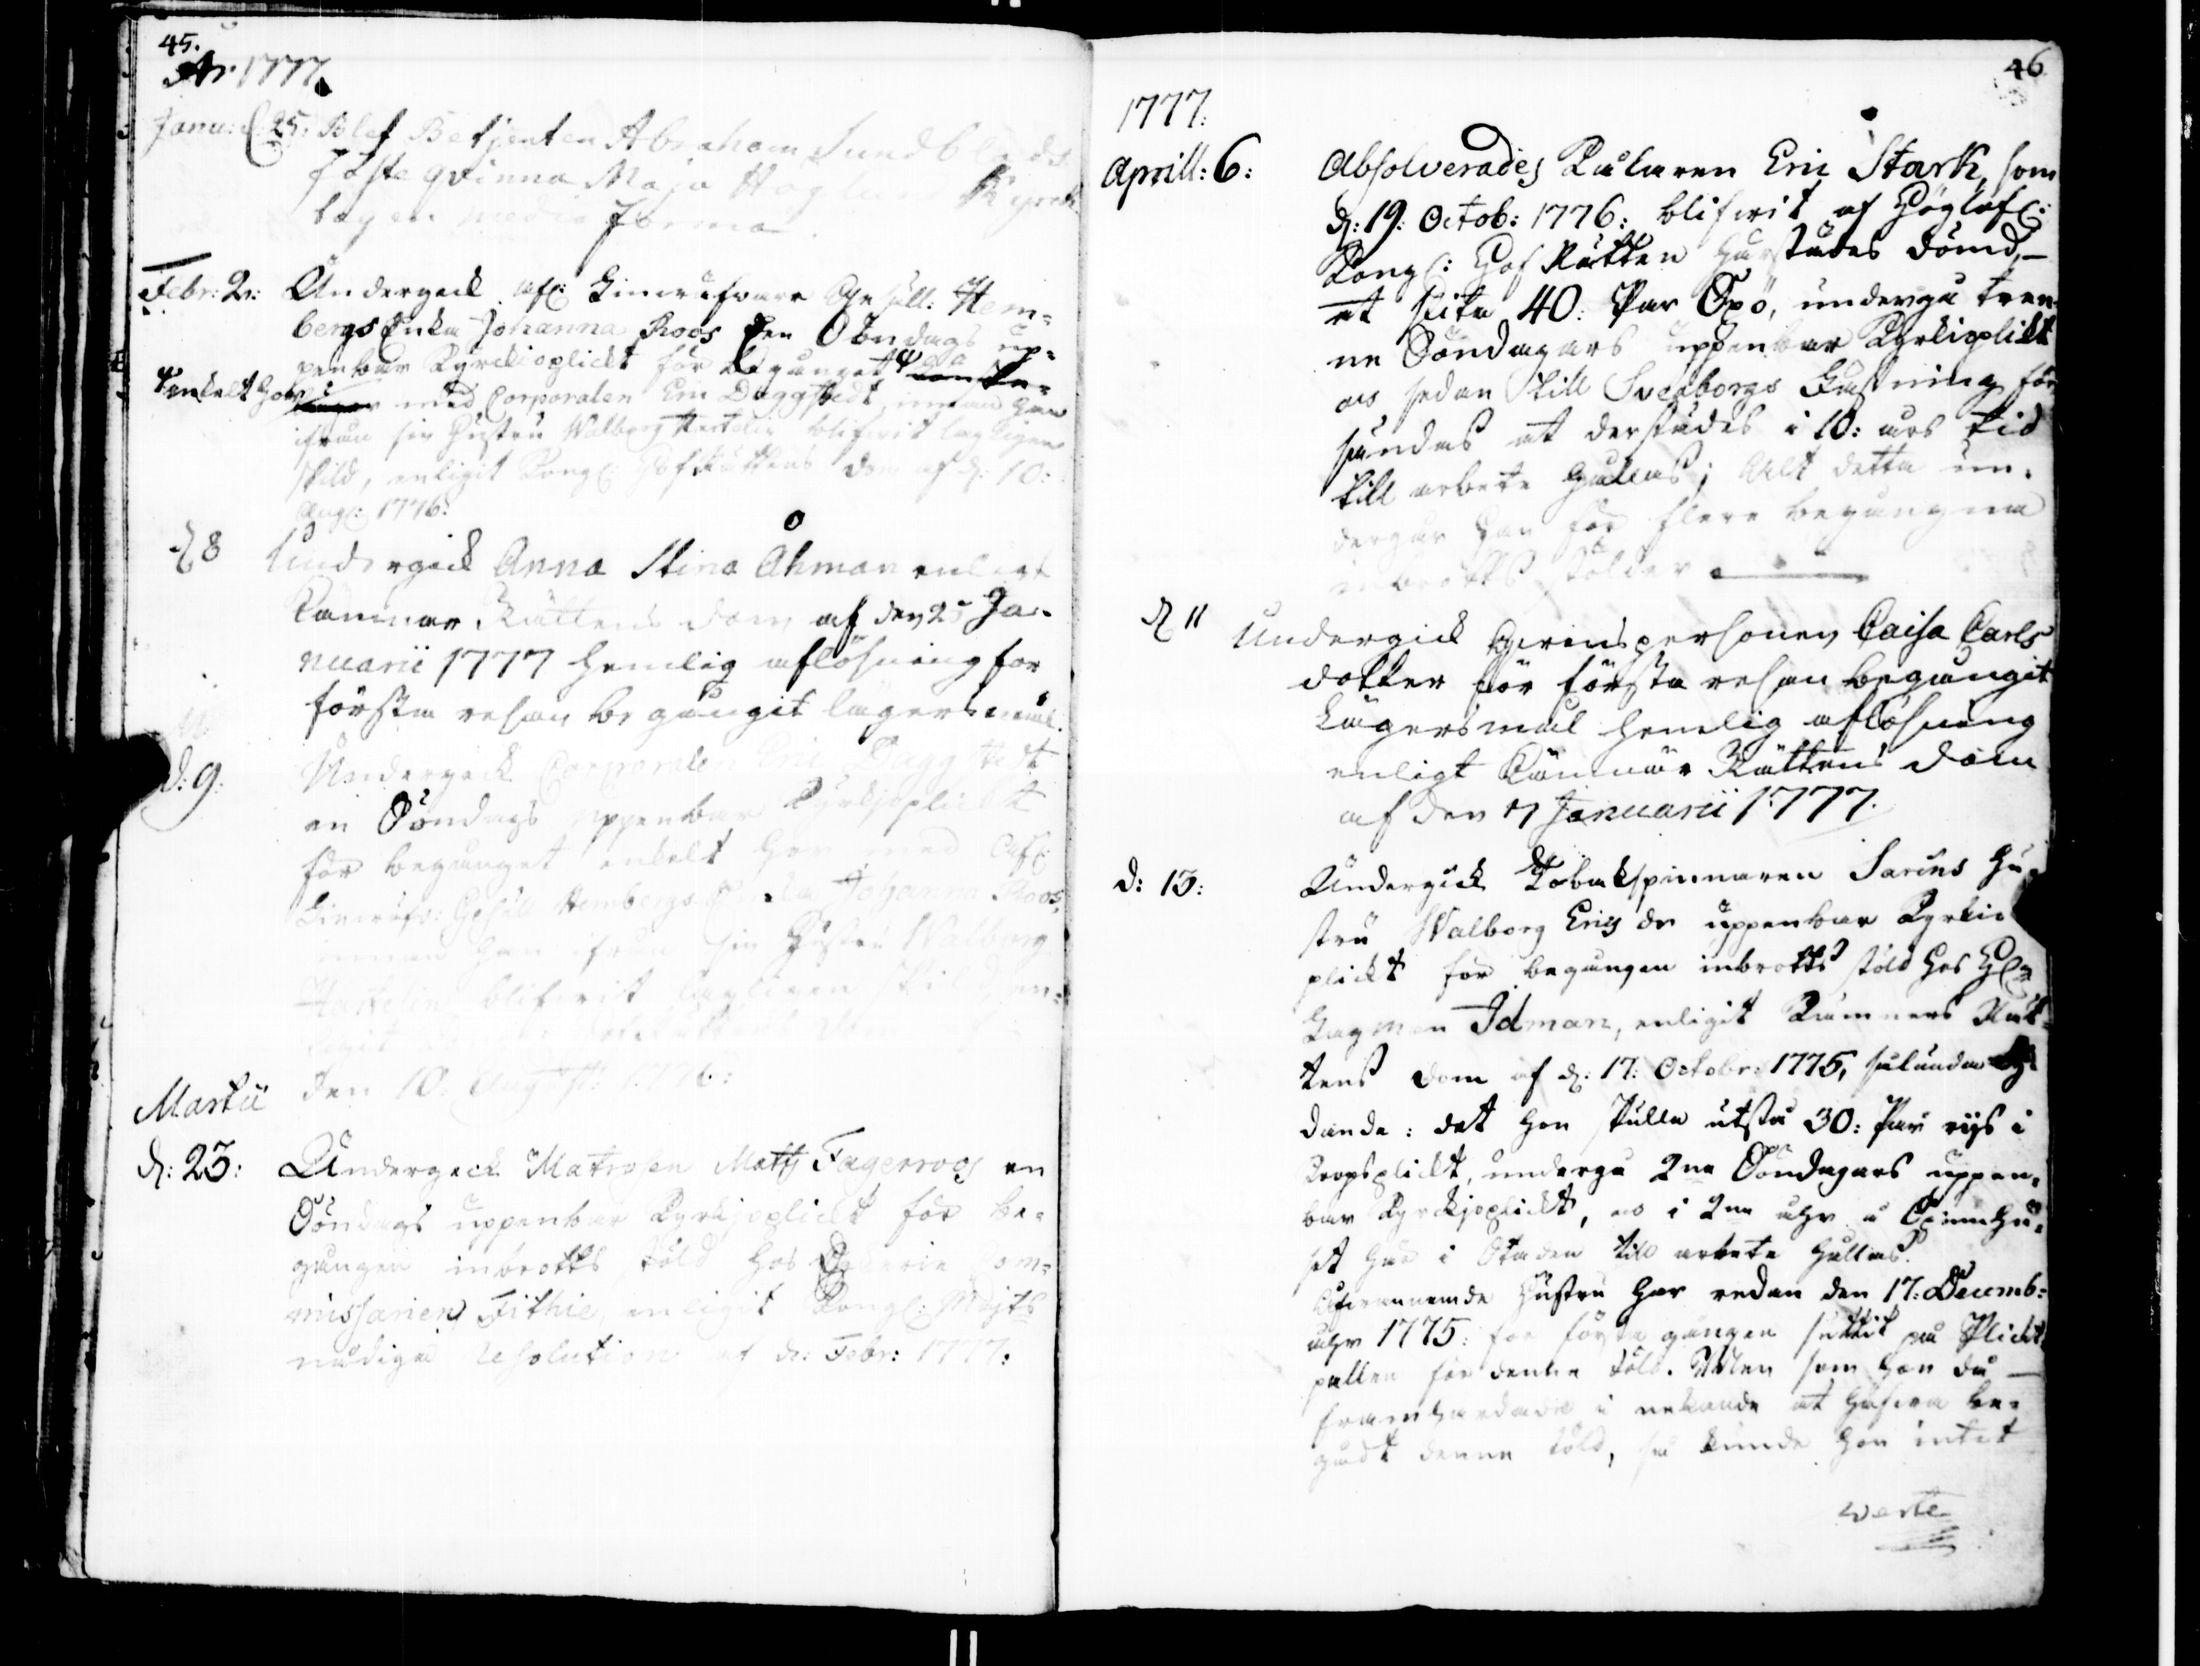 45.
Ar 1777.
Janu: d: 25. Blef Betjenten Abraham Sundblads
fäste qvinna Maja Hoglund Kyrck
tagen media forma.
Febr: 2: Undergeck afl: Linwäfvare Gesäll: Hem=
bergs Enka Johanna Roos En Söndags up=
penbar Kyrckioplickt för begånget
enkelt hor med Corporalen Eric Daggstedt, innan han
ifrån sin hustru Walborg Hartelin blifwit lagligen
skild, enligit Kongl: HofRättens dom af d: 10:
Aug: 1776.
d 8 Undergick Anna Stina Åhman enligt
Kämnär Rättens dom af den 25 Ja-
nuarii 1777 hemlig aflösning för
första resan begångit lägersmål.
d: 9. Undergeck Corporalen Eric Daggstedt
en Söndags uppenbar Kyrckjoplickt
för begånget enkelt hor med Afl:
Linwäfv: Gesäll Hembergs Enka Johanna Roos,
innan han ifrån sin Hustru Walborg
Hartelin blifwit lagligen skild, en=
ligit
den 10: August: 1776:
Martii
d: 23: Undergeck Matrosen Matts Fagerroos en
Söndags uppenbar Kyrkjoplickt för be=
gången inbrotts stöld hos Com=
missarien Fithie, enligit Kongl: Majts
nådiga Resolution af d: Febr: 1777.
46
1777:
Aprill: 6: Absolverades Eric Stark, som
d: 19: Octob: 1776: blifwit af Höglofl:
Kongl: Hof Rätten härstädes dömd,
at slita 40: Par Spö, undergå tren=
ne Söndagars uppenbar Kyrkioplikt
os sedan till Sveaborgs fästning för
sändas at derstädes i 10: års tid
till arbete hållas; Allt detta un=
dergår han för flere begångna
inbrotts stölder
d 11 Undergick qvinspersonen Caisa Carls
dotter för första resan begångit
Lägersmål hemlig aflösning
enligt Kämnär Rättens dom
af den 7 Januarii 1777.
d: 13: Undergick Tobakspinnaren Sarins Hu=
stru Walborg Ericsdr uppenbar Kyrkio
plickt för begången inbrotts stöld hos H:
Lagman Idman, enligit Kämners Rät=
tens dom af d: 17: Octobr: 1775, sålunda ly
dande: det hon skulle utstå 30: Par rijs i
Kropsplickt, undergå 2ne Söndagars uppen=
bar Kyrckjoplickt, os i 2ne åhr å Spinnhu=
set här i Staden till arbete hållas.
Ofvannemde Hustru har redan den 17: Decemb:
åhr 1775: för första gången suttit på Plickt
pallen för denna stöld. Men som hon då
framhärdade i nekande at hafva be=
gådt denna stöld, så kunde hon intet
verte